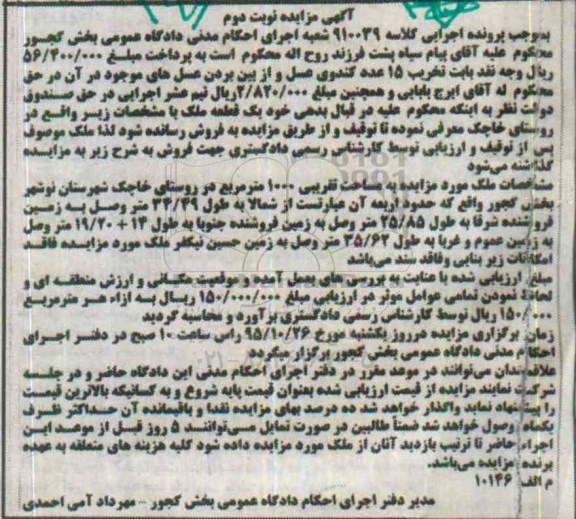 آگهی مزایده نوبت دوم
بموجب پرونده اجرایی کلاسه ۹۱۰۰۳۹ شعبه اجرای احکام مدنی دادگاه عمومی بخش کجور
محکوم علیه آقای پیام سیاه پشت فرزند روح اله محکوم است به پرداخت مبلغ ۵۶/۴۰۰/۰۰۰
ریال وجه نقد بابت تخریب ۱۵ عدد کندوی عسل و از بین بردن عسل های موجود در آن در حق
محکوم له آقای ایرج بابایی و همچنین مبلغ ۲/۸۲۰/۰۰۰ ریال نیم عشر اجرایی در حق صندوق
دولت نظر به اینکه محکوم علیه در قبال بدهی خود یک قطعه ملک با مشخصات زیر واقع در
روستای خاچک معرفی نموده تا توقیف و از طریق مزایده به فروش رسانده شود لذا ملک موصوف
پس از توقیف و ارزیابی توسط کارشناس رسمی دادگستری جهت فروش به شرح زیر به مزایده
گذاشته می‌شود
مشخصات ملک مورد مزایده به مساحت تقریبی ۱۰۰۰ مترمربع در روستای خاچک شهرستان نوشهر
بخش کجور واقع که حدود اربعه آن عبارتست از شمالا به طول ۳۴/۴۹ متر وصل به زمین
فروشنده شرقا به طول ۲۵/۸۵ متر وصل به زمین فروشنده جنوبا به طول ۱۴ + ۱۹/۲۰ متر وصل
به زمین عموم و غربا به طول ۳۵/۶۲ متر وصل به زمین حسین نیکفر ملک مورد مزایده فاقد
امکانات زیر بنایی وفاقد سند می‌باشد
مبلغ ارزیابی شده با عنایت به بررسی های بعمل آمده و موقعیت مکانی و ارزش منطقه ای و
لحاظ نمودن تمامی عوامل موثر در ارزیابی مبلغ ۱۵۰/۰۰۰/۰۰۰ ریال به ازاء هر مترمربع
۱۵۰/۰۰۰ ریال توسط کارشناس رسمی دادگستری برآورد و محاسبه گردید
زمان برگزاری مزایده درروز یکشنبه مورخ ۹۵/۱۰/۲۶ راس ساعت ۱۰ صبح در دفتر اجرای
احکام مدنی دادگاه عمومی بخش کجور برگزار میگردد
علاقمندان می‌توانند در موعد مقرر در دفتر اجرای احکام مدنی این دادگاه حاضر و در جلسه
شرکت نمایند مزایده از قیمت ارزیابی شده بعنوان قیمت پایه شروع و به کسانیکه بالاترین قیمت
را پیشنهاد نماید واگذار خواهد شد ده درصد بهای مزایده نقدا و باقیمانده آن حداکثر ظرف
یکماه وصول خواهد شد ضمناً طالبین در صورت تمایل می‌توانند ۵ روز قبل از موعد این
اجراء حاضر تا ترتیب بازدید آنان از ملک مورد مزایده داده شود کلیه هزینه های متعلقه به عهده
برنده مزایده می‌باشد.
م الف ۱۰۱۴۶
مدیر دفتر اجرای احکام دادگاه عمومی بخش کجور - مهرداد آمی احمدی